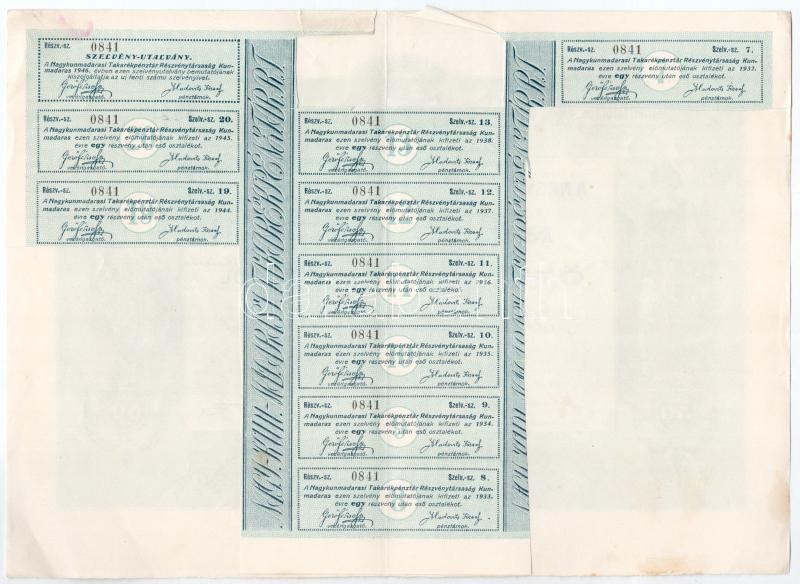 Részv.-sz. 0841
SZELVÉNY-UTALVÁNY.
A Nagykunmadarasi Takarékpénztár Részvénytársaság Kun-
madaras 1946. évben ezen szelvényutalvány bemutatójának
kiszolgáltatja az uj fenti számu szelvényívet.
vezérigazgató. pénztárnok.
Részv.-sz. 0841 Szelv.-sz. 20.
A Nagykunmadarasi Takarékpénztár Részvénytársaság Kun-
madaras ezen szelvény előmutatójának kifizeti az 1945.
évre egy részvény után eső osztalékot.
vezérigazgató. pénztárnok.
Részv.-sz. 0841 Szelv.-sz. 19.
A Nagykunmadarasi Takarékpénztár Részvénytársaság Kun-
madaras ezen szelvény előmutatójának kifizeti az 1944.
évre egy részvény után eső osztalékot.
vezérigazgató. pénztárnok.
Részv.-sz. 0841 Szelv.-sz. 13.
A Nagykunmadarasi Takarékpénztár Részvénytársaság Kun-
madaras ezen szelvény előmutatójának kifizeti az 1938.
évre egy részvény után eső osztalékot.
vezérigazgató. pénztárnok.
Részv.-sz. 0841 Szelv.-sz. 12.
A Nagykunmadarasi Takarékpénztár Részvénytársaság Kun-
madaras ezen szelvény előmutatójának kifizeti az 1937.
évre egy részvény után eső osztalékot.
vezérigazgató. pénztárnok.
Részv.-sz. 0841 Szelv.-sz. 11.
A Nagykunmadarasi Takarékpénztár Részvénytársaság Kun-
madaras ezen szelvény előmutatójának kifizeti az 1936.
évre egy részvény után eső osztalékot.
vezérigazgató. pénztárnok.
Részv.-sz. 0841 Szelv.-sz. 10.
A Nagykunmadarasi Takarékpénztár Részvénytársaság Kun-
madaras ezen szelvény előmutatójának kifizeti az 1935.
évre egy részvény után eső osztalékot.
vezérigazgató. pénztárnok.
Részv.-sz. 0841 Szelv.-sz. 9.
A Nagykunmadarasi Takarékpénztár Részvénytársaság Kun-
madaras ezen szelvény előmutatójának kifizeti az 1934.
évre egy részvény után eső osztalékot.
vezérigazgató. pénztárnok.
Részv.-sz. 0841 Szelv.-sz. 8.
A Nagykunmadarasi Takarékpénztár Részvénytársaság Kun-
madaras ezen szelvény előmutatójának kifizeti az 1933.
évre egy részvény után eső osztalékot.
vezérigazgató. pénztárnok.
Részv.-sz. 0841 Szelv.-sz. 7.
A Nagykunmadarasi Takarékpénztár Részvénytársaság Kun-
madaras ezen szelvény előmutatójának kifizeti az 1932.
évre egy részvény után eső osztalékot.
vezérigazgató. pénztárnok.